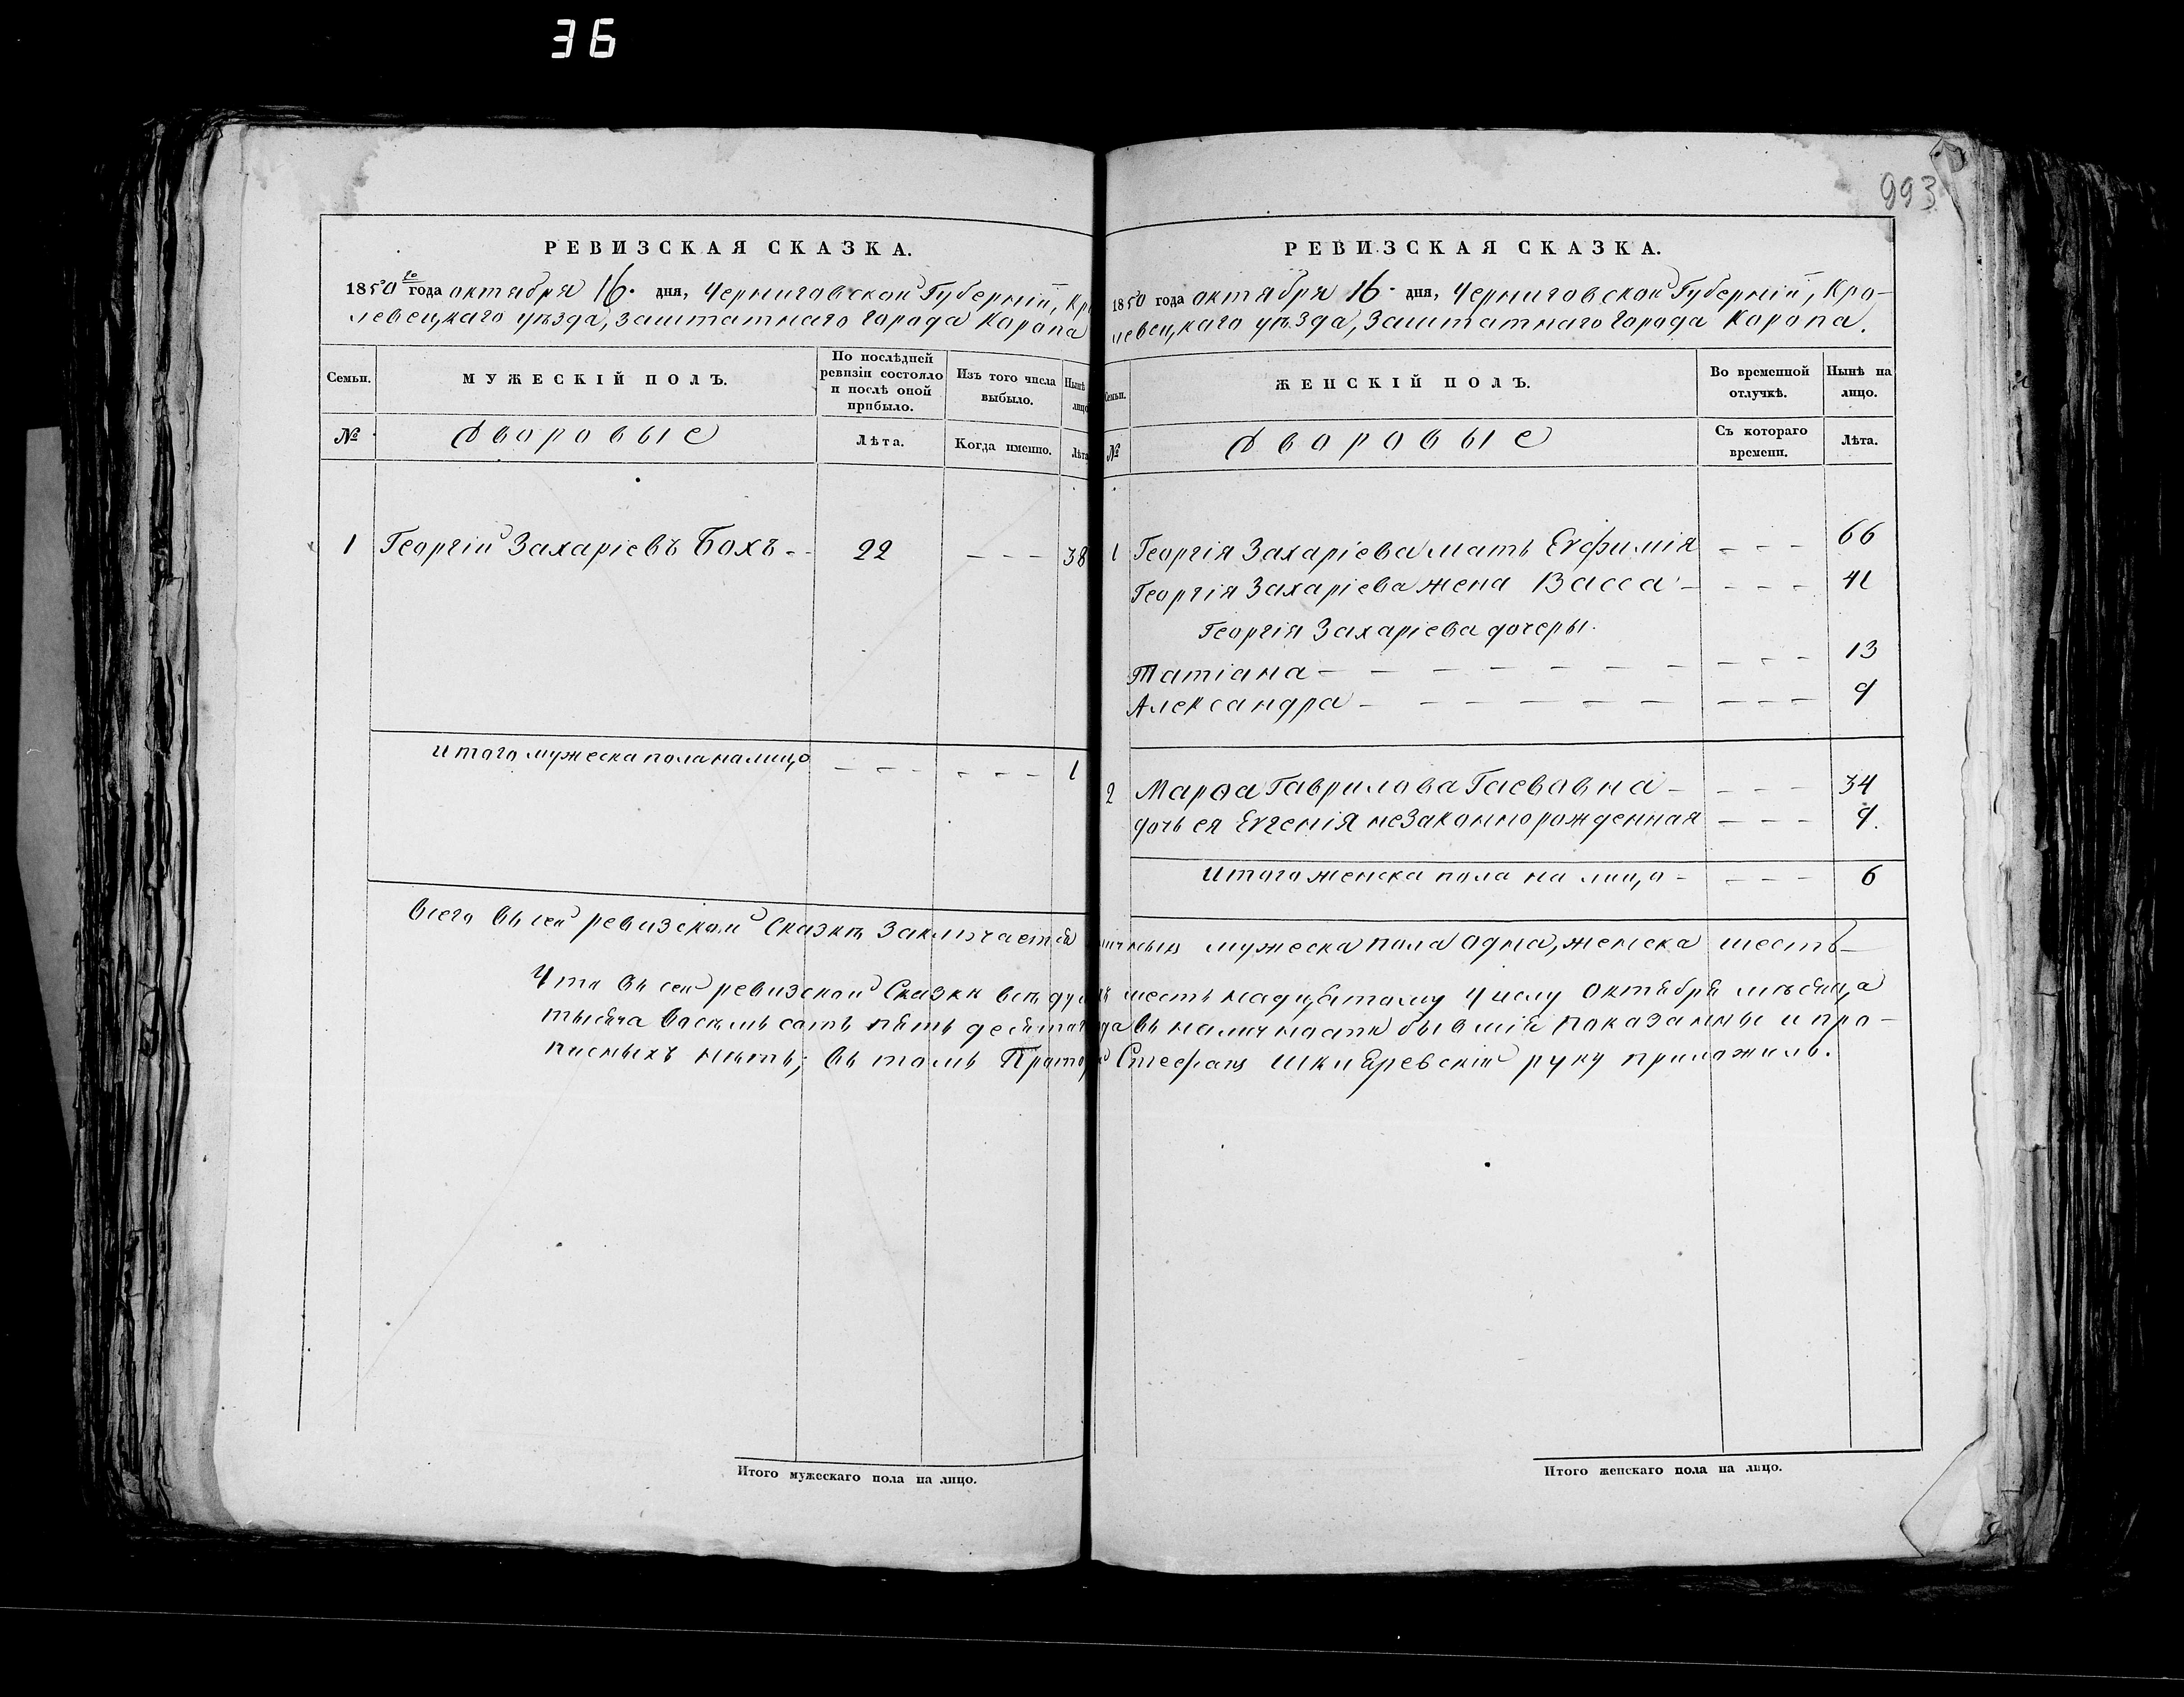 36
993
РЕВИЗСКАЯ СКАЗКА.
1850го года октября 16. дня, Черниговской Губерніи, Кро
левецкаго уѣзда, заштатнаго города Коропа
Семьи.
МУЖЕСКІЙ ПОЛЪ.
По послѣдней ревизіи состояло и послѣ оной прибыло.
Изъ того числа выбыло.
Нынѣ лицо
№
Дворовые
Лѣта.
Когда именно.
Лѣта
1 Георгій Захаріевъ Бохъ - - 22 - - - 38
Итого мужеска пола на лицо - - - - - - 1
РЕВИЗСКАЯ СКАЗКА.
1850 года октября 16. дня, Черниговской Губерніи, Кро-
левецкаго уѣзда, Заштатнаго города Коропа.
Семьи.
ЖЕНСКІЙ ПОЛЪ.
Во временной отлучкѣ.
Нынѣ на лицо.
№
Дворовые
Съ котораго времени.
Лѣта.
1 Георгія Захаріева мать Евфимія - - - 66
Георгія Захаріева жена Васса - - - - 41
Георгія Захаріева дочеры.
Татіана - - - - - - - - - - - 13
Александра - - - - - - - - - - 9
2 Марѳа Гаврилова Гаевовна - - - - 34
дочь ея Евгенія незаконнорожденная - - - 9.
Итого женска пола на лицо - - - - 6
Всего въ сей ревизской Сказкѣ заключается личныхъ мужеска пола одна, женска шесть
Что въ сей ревизской Сказки всѣ душъ шестьнадцятому числу октября мѣсяца
тысяча восемь сотъ пять десятого года въ наличности бывшія показанны и про-
писныхъ нѣтъ; въ томъ Стефанъ Шкляревскій руку приложилъ.
Итого мужескаго пола на лицо.
Итого женскаго пола на лицо.